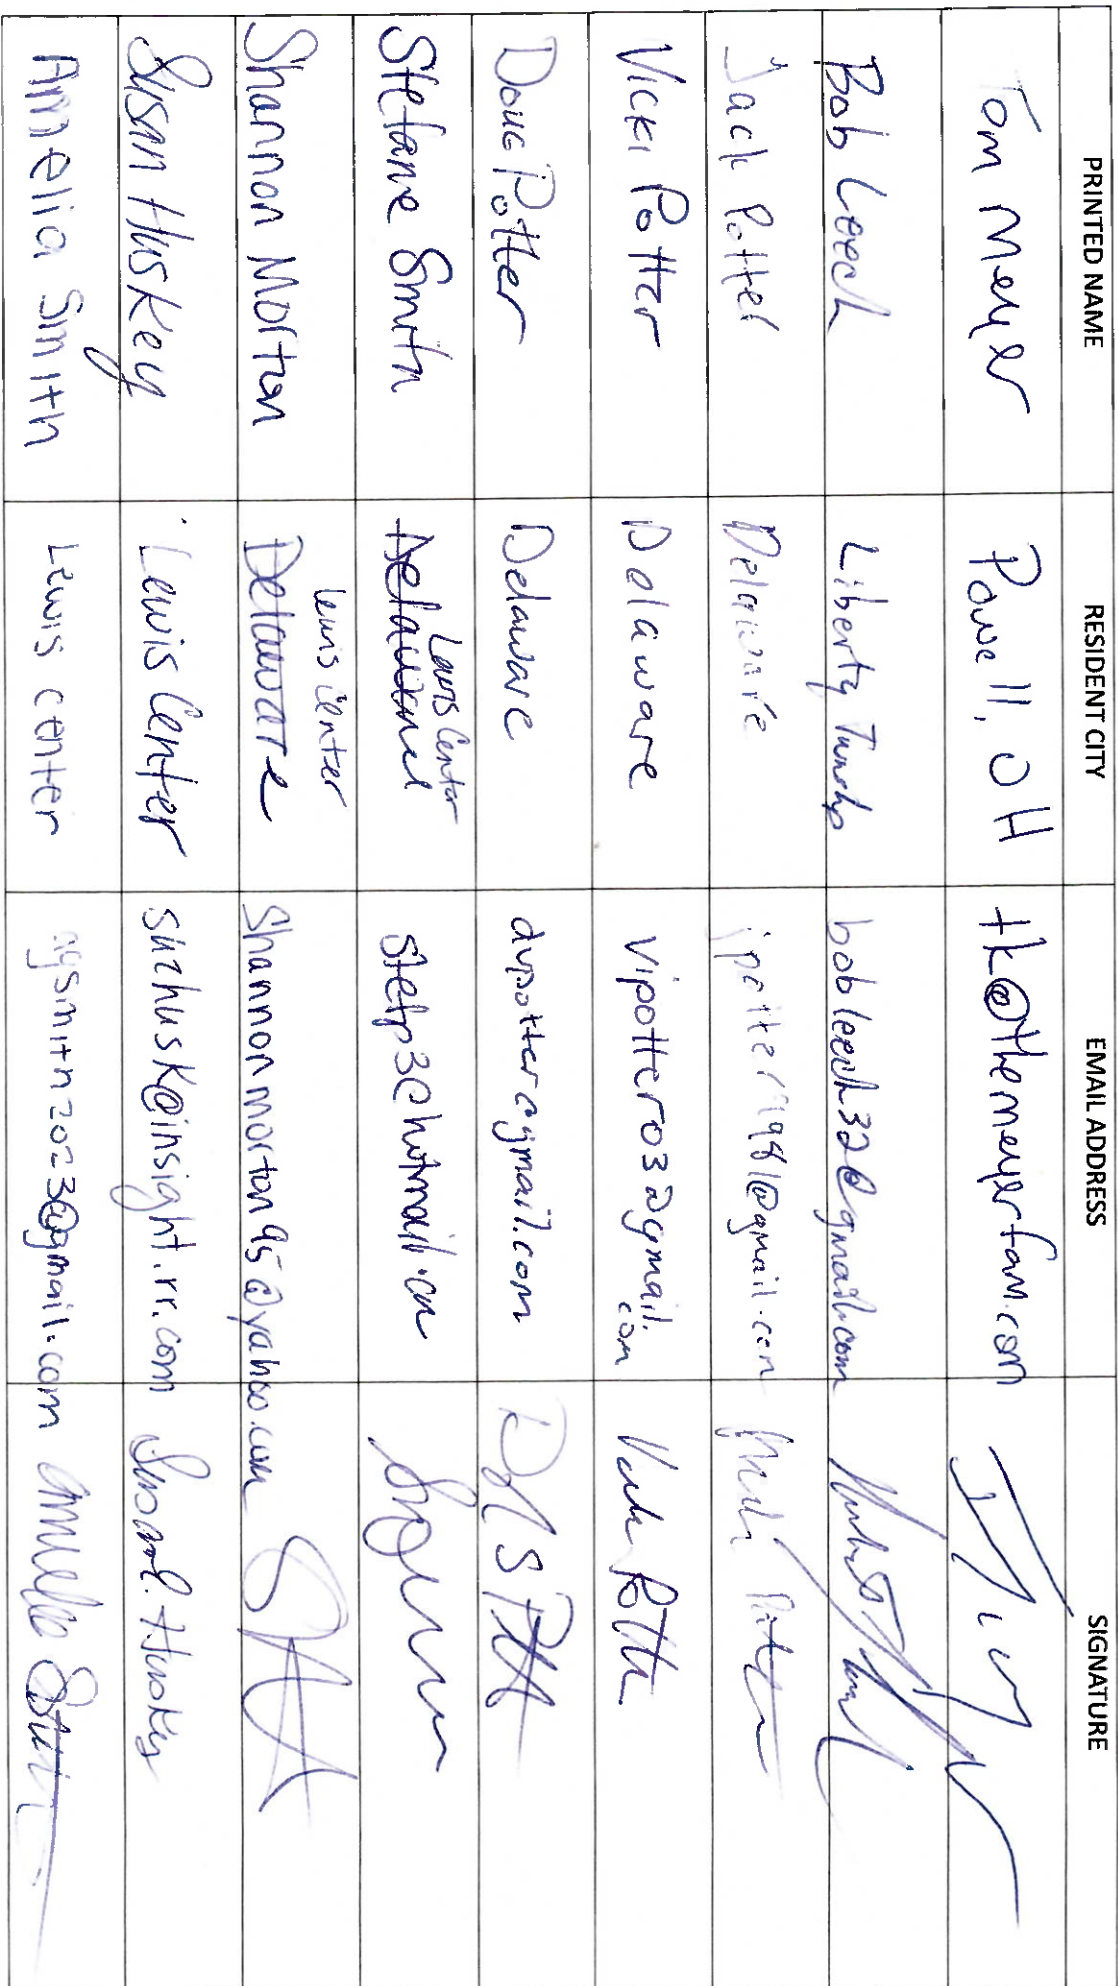 PRINTED NAME RESIDENT CITY EMAIL ADDRESS SIGNATURE
Tom Meyer Powell, OH tk@themeyerfam.com
Bob Leech Liberty Township bobleech32@gmail.com
Jack Potter Delaware jpotter1981@gmail.com
Vicki Potter Delaware vipotter03@gmail.com
Doug Potter Delaware dvpotter@gmail.com
Stefanie Smith Delaware Lewis Center
Shannon Morton Delaware Lewis Center shannonmorton95@yahoo.com
Susan Huskey Lewis Center suzhusk@insight.rr.com Susan L. Huskey
Amelia Smith Lewis Center Amelia Smith